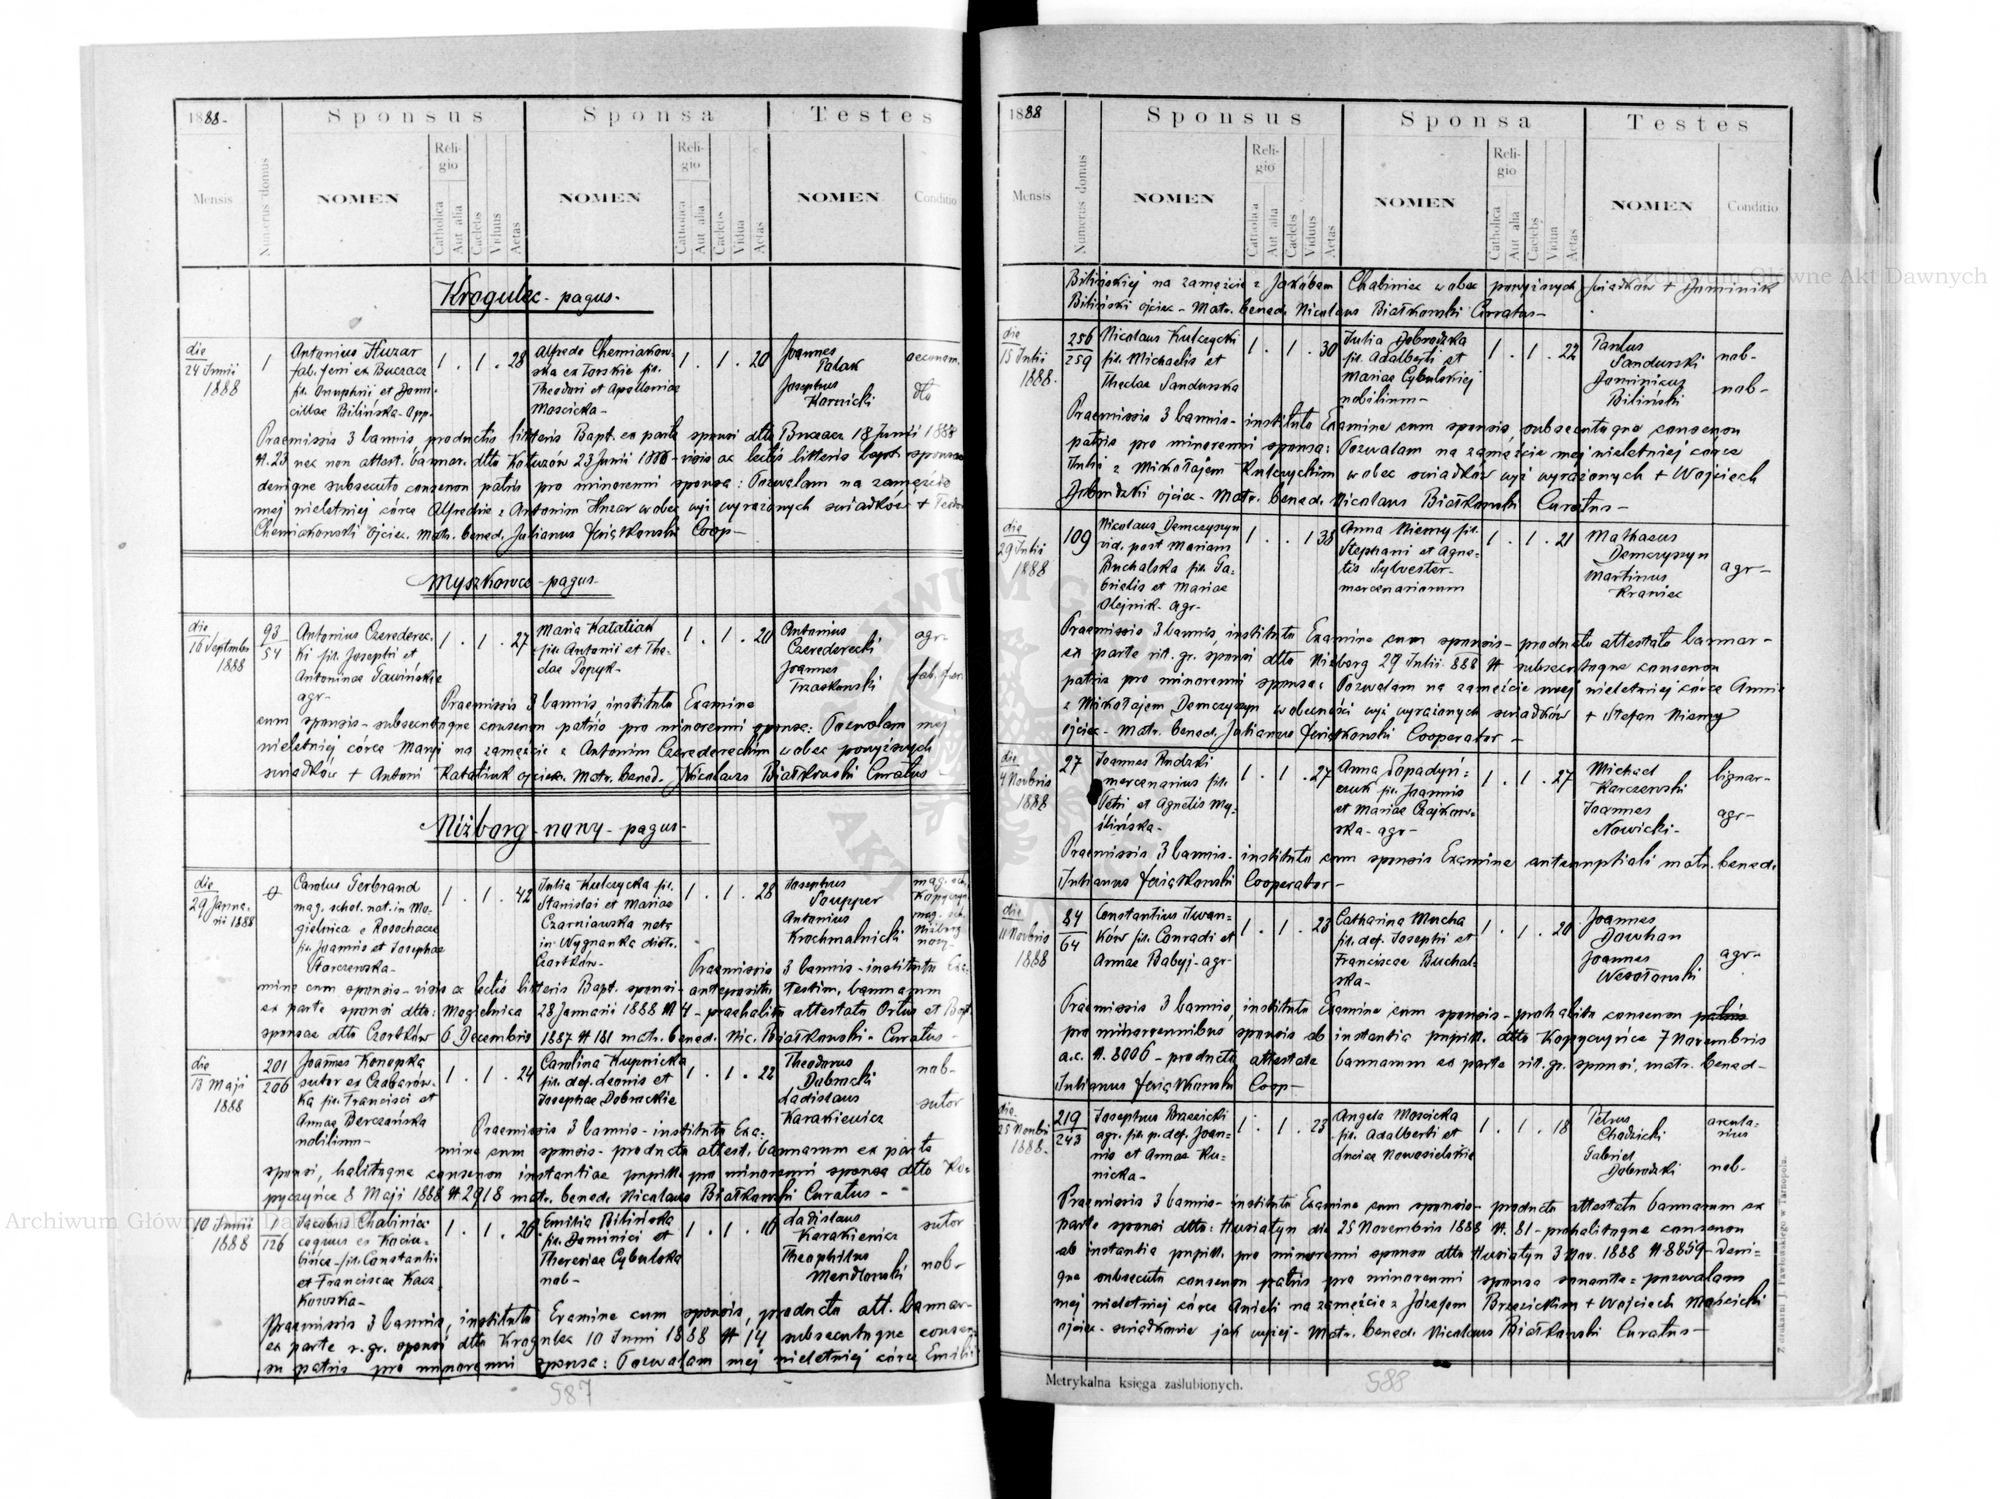 1888-
Sponsus
Sponsa
Testes
Mensis
Numerus domus
NOMEN
Religio
Catholica
Aut alia
Caelebs
Viduus
Aetas
NOMEN
Religio
Catholica
Aut alia
Caelebs
Vidua
Aetas
NOMEN
Conditio
Krogulec - pagus -
die
24 Junii
1888
1
Antonius Huzar
fab. ferri ex Buczacz
fil. Onuphrii et Domi-
cillae Bilińska - opp.
1 . 1 . 28
Alfreda Cherniakow-
ska ex Torskie fil.
Theodori et Apolloniae
Moscicka -
1 . 1 . 20
Joannes
Palak
Josephus
Karnicki
oeconom.
dto
Praemissis 3 bannis productis litteris Bapt. ex parte sponsi dtto Buczacz 18 Junii 1888
N. 23 nec non attest. bannar. dtto Kotuzów 23 Junii 1888 - visis ac lectis litteris bapt sponsae
denique subsecuto consensu patris pro minorenni sponsa: Pozwalam na zamęście
mej nieletniej córce Alfredzie z Antonim Huzar wobec wyż wyrażonych świadków + Teodor
Cherniakowski Ojciec. Matr. bened. Julianus Świątkowski Coop -
Myszkowce - pagus -
die
16 Septembr
1888
93
54
Antonius Czerederec-
ki fil. Josephi et
Antoninae Gawińskie
agr -
1 . 1 . 27
Maria Kataliak
fil. Antonii et The-
clae Popyk -
1 . 1 . 20
Antonius
Czerederecki
Joannes
Trzaskowski
agr -
fab. fer.
Praemissis 3 bannis, instituto Examine
cum sponsis - subsecutoque consensu patris pro minorenni sponsa: Pozwalam mej
nieletniej córce Maryi na zamęście z Antonim Czerederechim wobec powyższych
świadków + Antoni Kataliuk ojciec. Matr. bened. Nicolaus Białkowski Curatus -
Niżborg - nowy - pagus -
die
29 Janua-
rii 1888
Carolus Gerbrand
mag. schol. nat. in Mo-
gielnica e Rosochacz
fil. Joannis et Josephae
Starczewska -
1 . 1 . 42
Julia Kulczycka fil.
Stanislai et Mariae
Czarniawska nata
in Wygnanka distr.
Czortków -
1 . 1 . 28
Josephus
Soupper
Antonius
Krochmalnicki
mag. sch.
Kopyczyn.
mag. sch.
Niżborg
nowy -
Praemissis 3 bannis - instituto Exa-
mine cum sponsis - visis ac lectis litteris Bapt. sponsi - anteposito Testim. bannarum
ex parte sponsi dtto: Mogielnica 28 Januarii 1888 N 4 - praehabito attestato Ortus et Bapt.
sponsae dtto Czortków 6 Decembris 1887 N 181 matr. bened. Nic. Białkowski - Curatus -
die
13 Maji
1888
201
206
Joannes Konopka
sutor ex Czabarów-
ka fil. Francisci et
Annae Berezańska
nobilium -
1 . 1 . 24
Carolina Kupnicka
fil. def. Leonis et
Josephae Dobrockie
1 . 1 . 22
Theodorus
Dobrocki
Ladislaus
Karakiewicz
nob -
sutor
Praemissis 3 bannis - instituto Exa-
mine cum sponsis - producto attest. bannarum ex parte
sponsi, habitoque consensu instantiae pupill. pro minorenni sponsa dtto Ko-
pyczyńce 8 Maji 1888 N 2918 matr. bened. Nicolaus Białkowski Curatus -
10 Junii
1888
1
126
Jacobus Chaliniec
coquus ex Kociu-
bińce - fil. Constantii
et Franciscae Kacz-
kowska -
1 . 1 . 26
Emilia Bilińska
fil. Dominici et
Theresiae Cybulska
nob -
1 . 1 . 16
Ladislaus
Karakiewicz
Theophilus
Mendlowski
sutor
nob -
Praemissis 3 bannis, instituto Examine cum sponsis, producto att. bannar-
ex parte r. gr. sponsi dtto Krogulec 10 Junii 1888 N 14 subsecutoque consen-
su patris pro minorenni sponsa: Pozwalam mej nieletniej córce Emilii
587
1888
Sponsus
Sponsa
Testes
Mensis
Numerus domus
NOMEN
Religio
Catholica
Aut alia
Caelebs
Viduus
Aetas
NOMEN
Religio
Catholica
Aut alia
Caelebs
Vidua
Aetas
NOMEN
Conditio
Bilińskiej na zamęście z Jakóbem Chaliniec wobec powyższych świadków + Dominik
Biliński ojciec - Matr. bened. Nicolaus Białkowski Curatus -
die
15 Julii
1888.
256
259
Nicolaus Kulczycki
fil. Michaelis et
Theclae Sandurska
1 . 1 . 30
Julia Dobrodzka
fil. Adalberti et
Mariae Cybulskiej
nobilium -
1 . 1 . 22
Paulus
Sandurski
Dominicus
Biliński
nob -
nob -
Praemissis 3 bannis - instituto Examine cum sponsis, subsecutoque consensu
patris pro minorenni sponsa: Pozwalam na zamęście mej nieletniej córce
Julii z Mikołajem Kulczyckim wobec świadków wyż wyrażonych + Wojciech
Dobrodzki ojciec - Matr. bened. Nicolaus Białkowski Curatus -
die
29 Julii
1888
109
Nicolaus Demczyszyn
vid. post Mariam
Buchalska fil. Ga-
brielis et Mariae
Olejnik - agr -
1 . . 1 38
Anna Niemy fil.
Stephani et Agne-
tis Sylvester -
mercenariorum
1 . 1 . 21
Mathaeus
Demczyszyn
Martinus
Krawiec
agr -
Praemissis 3 bannis, instituto Examine cum sponsis - producto attestato bannar -
ex parte rit. gr. sponsi dtto Niżborg 29 Julii 888 N subsecutoque consensu
patris pro minorenni sponsa: Pozwalam na zamęście mej nieletniej córce Annie
z Mikołajem Demczyszyn w obecności wyż wyrażonych świadków + Stefan Niemy
ojciec - matr. bened. Julianus Świątkowski Cooperator -
die
4 Novbris
1888
27
Joannes Rudzki
mercenarius fil.
Petri et Agnetis My-
ślińska -
1 . 1 . 27
Anna Popadyń-
czuk fil. Joannis
et Mariae Czajkow-
ska - agr -
1 . 1 . 27
Michael
Karczewski
Joannes
Nowicki -
lignar -
agr -
Praemissis 3 bannis - instituto cum sponsis Examine antenuptiali matr. bened.
Julianus Świątkowski Cooperator -
die
11 Novbris
1888
84
64
Constantius Iwan-
ków fil. Conradi et
Annae Babyj - agr
1 . 1 . 23
Catharina Mucha
fil. def. Josephi et
Franciscae Buchal-
ska -
1 . 1 . 20
Joannes
Dowhan
Joannes
Wesołowski
agr -
Praemissis 3 bannis, instituto Examine cum sponsis - prohabito consensu patris
pro minorennibus sponsis ab instantia pupill. dtto Kopyczyńce 7 Novembris
a.c. N. 8006 - producto attestato bannarum ex parte rit. gr. sponsi, matr. bened -
Julianus Świątkowski Coop -
die
25 Novbri
1888 -
219
243
Josephus Brzezicki
agr. fil. p. def. Joan-
nis et Annae Ku-
nicka -
1 . 1 . 23
Angela Moscicka
fil. Adalberti et
Luciae Nowosielskie
1 . 1 . 18
Petrus
Chadzicki
Gabriel
Dobrodzki
arcula-
rius
nob -
Praemissis 3 bannis - instituto Examine cum sponsis - producto attestato bannarum ex
parte sponsi dtto: Husiatyn die 25 Novembris 1888 N. 81 - prohabitoque consensu
ab instantia pupill. pro minorenni sponso dtto Husiatyn 3 Nov. 1888 N 8859 - deni-
que subsecuto consensu patris pro minorenni sponsa sonante = pozwalam
mej nieletniej córce Anieli na zamęście z Józefem Brzezickim + Wojciech Mościcki
ojciec - świadkowie jak wyżej - Matr. bened. Nicolaus Białkowski Curatus -
Metrykalna księga zaślubionych.
588
Z drukarni J. Pawłowskiego w Tarnopolu.
Archiwum Główne Akt Dawnych
Archiwum Główne Akt Dawnych